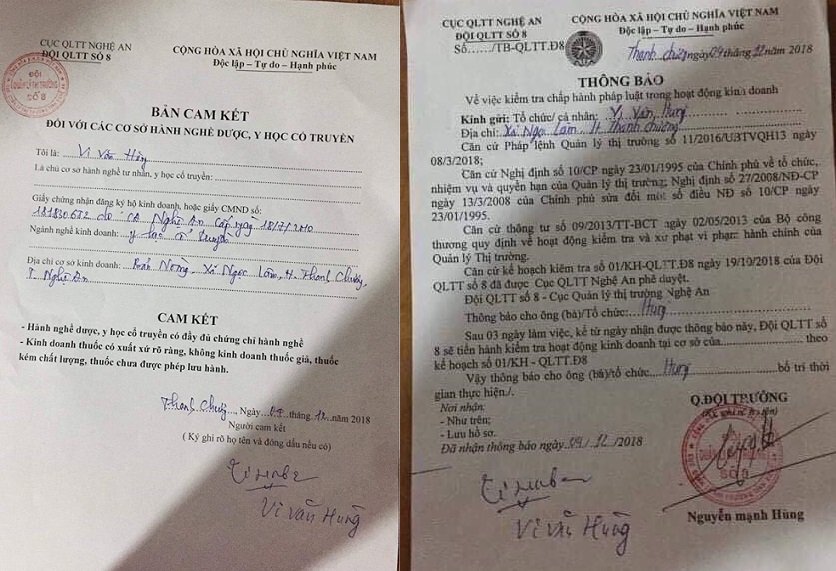 CỤC QLTT NGHỆ AN
ĐỘI QLTT SỐ 8
CỘNG HÒA XÃ HỘI CHỦ NGHĨA VIỆT NAM
Độc lập – Tự do – Hạnh phúc
ĐỘI
QUẢN LÝ THỊ TRƯỜNG
SỐ 8
BẢN CAM KẾT
ĐỐI VỚI CÁC CƠ SỞ HÀNH NGHỀ DƯỢC, Y HỌC CỔ TRUYỀN
Tôi là: Vi Văn Hùng
Là chủ cơ sở hành nghề tư nhân, y học cổ truyền:
Giấy chứng nhận đăng ký hộ kinh doanh, hoặc giấy CMND số:
181830672 do CA Nghệ An cấp ngày 18/7/2010
Ngành nghề kinh doanh: y học cổ truyền
Địa chỉ cơ sở kinh doanh: Bản Nòng, Xã Ngọc Lâm, H. Thanh Chương,
T. Nghệ An
CAM KẾT
- Hành nghề dược, y học cổ truyền có đầy đủ chứng chỉ hành nghề
- Kinh doanh thuốc có xuất xứ rõ ràng, không kinh doanh thuốc giả, thuốc
kém chất lượng, thuốc chưa được phép lưu hành.
Thanh Chương, Ngày tháng 12 năm 2018
Người cam kết
( Ký ghi rõ họ tên và đóng dấu nếu có)
Vi Văn Hùng
CỤC QLTT NGHỆ AN
ĐỘI QLTT SỐ 8
Số....../TB-QLTT.Đ8
CỘNG HÒA XÃ HỘI CHỦ NGHĨA VIỆT NAM
Độc lập – Tự do – Hạnh phúc
Thanh Chương ngày 04 tháng 12 năm 2018
THÔNG BÁO
Về việc kiểm tra chấp hành pháp luật trong hoạt động kinh doanh
Kính gửi: Tổ chức/ cá nhân: Vi Văn Hùng
Địa chỉ: Xã Ngọc Lâm, H Thanh Chương
Căn cứ Pháp lệnh Quản lý thị trường số 11/2016/UBTVQH13 ngày
08/3/2018;
Căn cứ Nghị định số 10/CP ngày 23/01/1995 của Chính phủ về tổ chức,
nhiệm vụ và quyền hạn của Quản lý thị trường; Nghị định số 27/2008/NĐ-CP
ngày 13/3/2008 của Chính phủ sửa đổi một số điều NĐ số 10/CP ngày
23/01/1995.
Căn cứ thông tư số 09/2013/TT-BCT ngày 02/05/2013 của Bộ công
thương quy định về hoạt động kiểm tra và xử phạt vi phạm hành chính của
Quản lý Thị trường.
Căn cứ kế hoạch kiểm tra số 01/KH-QLTT.Đ8 ngày 19/10/2018 của Đội
QLTT số 8 đã được Cục QLTT Nghệ An phê duyệt.
Đội QLTT số 8 - Cục Quản lý thị trường Nghệ An
Thông báo cho ông (bà)/Tổ chức: Hùng
Sau 03 ngày làm việc, kể từ ngày nhận được thông báo này, Đội QLTT số
8 sẽ tiến hành kiểm tra hoạt động kinh doanh tại cơ sở của.................... theo
kế hoạch số 01/KH - QLTT.Đ8
Vậy thông báo cho ông (bà)/tổ chức Hùng bố trí thời
gian thực hiện./.
Nơi nhận:
- Như trên;
- Lưu hồ sơ.
Đã nhận thông báo ngày 04 / 12 /2018
Q.ĐỘI TRƯỞNG
(Ký, ghi rõ họ tên)
QUẢN LÝ THỊ TRƯỜNG
SỐ 8
Vi Văn Hùng
Nguyễn mạnh Hùng